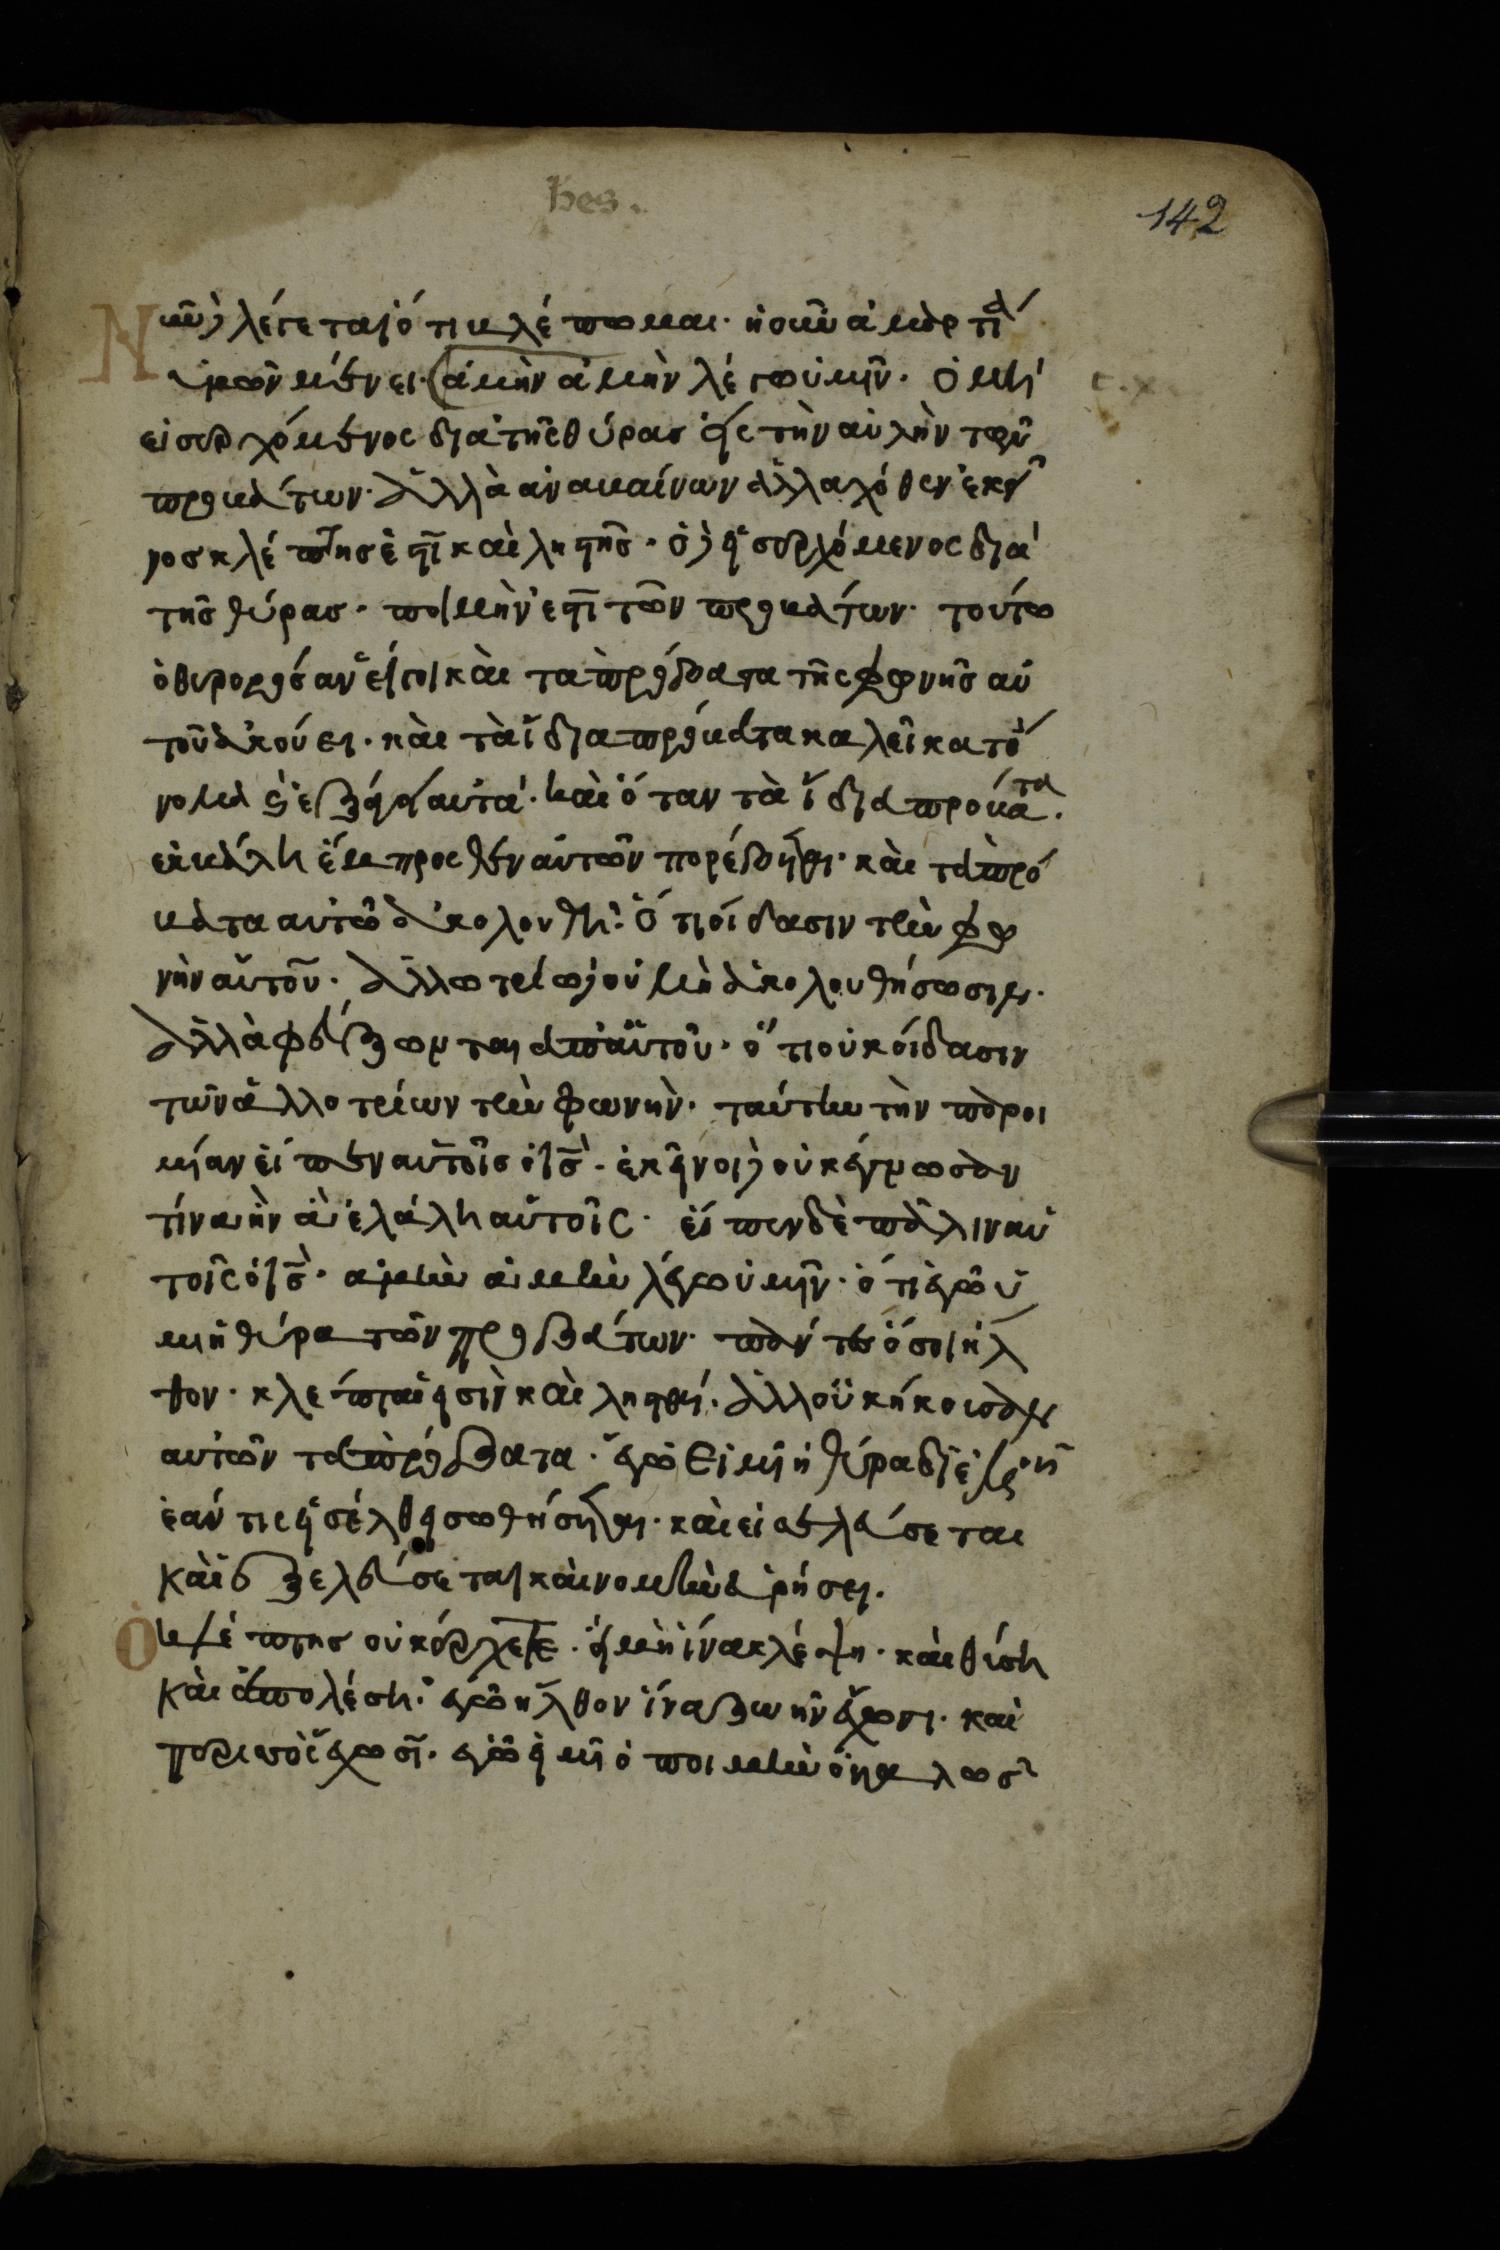 hes.
142
Νῦν λέγεται ὅτι βλέπωμεν· ἡ οὖν ἁμαρτία
ὑμῶν μένει· ἀμὴν ἀμὴν λέγω ὑμῖν· ὁ μὴ
c. x.
εἰσερχόμενος διὰ τῆς θύρας εἰς τὴν αὐλὴν τῶν
προβάτων· ἀλλὰ ἀναβαίνων ἀλλαχόθεν ἐκεῖ
νος κλέπτης ἐστὶ καὶ ληστής· ὁ δὲ εἰσερχόμενος διὰ
τῆς θύρας· ποιμήν ἐστι τῶν προβάτων· τούτω
ὁ θυρορὸς ἀνείγει καὶ τὰ πρόβατα τῆς φωνῆς αὐ
τοῦ ἀκούει· καὶ τὰ ἴδια πρόβατα καλεῖ κατό
νομα καὶ ἐξάγει αὐτά· καὶ ὅταν τὰ ἴδια πρόβατα
ἐκβάλη ἔμπροσθεν αὐτῶν πορεύεται· καὶ τὰ πρό
βατα αὐτῶ ἀκολουθεῖ· ὅτι οἴδασιν τὴν φω
νὴν αὐτοῦ· ἀλλωτρίω δὲ οὐ μὴ ἀκολουθήσωσιν·
ἀλλὰ φεύξωνται ἀπ' αὐτοῦ· ὅτι οὐκ οἴδασιν
τῶν ἀλλοτρίων τὴν φωνήν· ταύτην τὴν παροι
μίαν εἶπεν αὐτοῖς ὁ ις· ἐκεῖνοι δὲ οὐκ ἔγνωσαν
τίνα ἦν ἃ ἐλάλη αὐτοῖς· εἶπεν δὲ πάλιν αὐ
τοῖς ὁ ις· ἀμὴν ἀμὴν λέγω ὑμῖν· ὅτι ἐγὼ εἰ
μι ἡ θύρα τῶν προβάτων· πάντες ὅσοι ἦλ
θον· κλέπται εἰσὶν καὶ λησταί· ἀλλ' οὐκ ἤκουσαν
αὐτῶν τὰ πρόβατα· ἐγώ εἰμι ἡ θύρα δι' ἐμοῦ
ἐάν τις εἰσέλθη σωθήσηται· καὶ εἰσελεύσεται
καὶ ἐξελεύσεται καὶ νομὴν εὑρήσει·
Ὁ κλέπτης οὐκ ἔρχεται· εἰ μὴ ἵνα κλέψη· καὶ θύση
καὶ ἀπολέση· ἐγὼ ἦλθον ἵνα ζωὴν ἔχωσι· καὶ
περισσὸν ἔχωσι· ἐγώ εἰμι ὁ ποιμὴν ὁ καλός